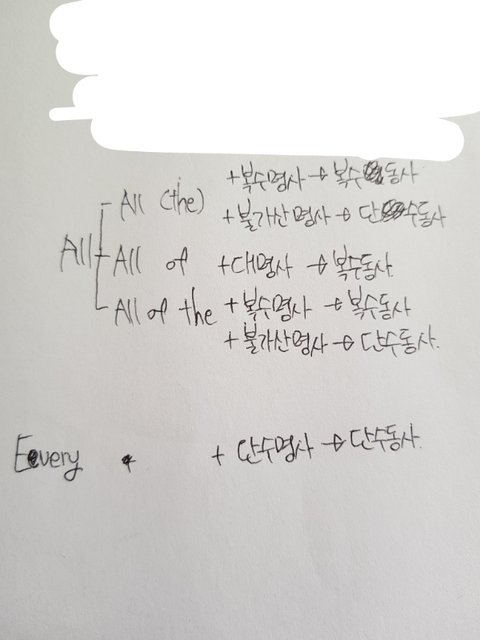 +복수명사 → 복수동사
All (the)
+불가산명사 → 단수동사
All
All of +대명사 → 복수동사
All of the +복수명사 → 복수동사
+불가산명사 → 단수동사.
Every + 단수명사 → 단수동사.